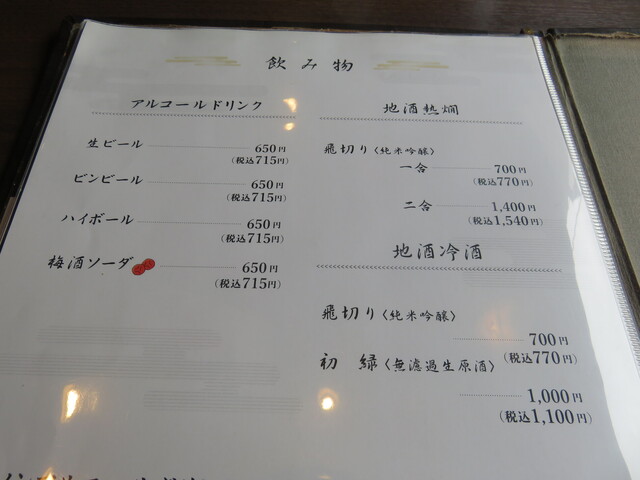 飲み物
アルコールドリンク
生ビール 650円
(税込715円)
ビンビール 650円
(税込715円)
ハイボール 650円
(税込715円)
梅酒ソーダ 650円
(税込715円)
地酒熱燗
飛切り〈純米吟醸〉
一合 700円
(税込770円)
二合 1,400円
(税込1,540円)
地酒冷酒
飛切り〈純米吟醸〉
700円
(税込770円)
初緑〈無濾過生原酒〉
1,000円
(税込1,100円)